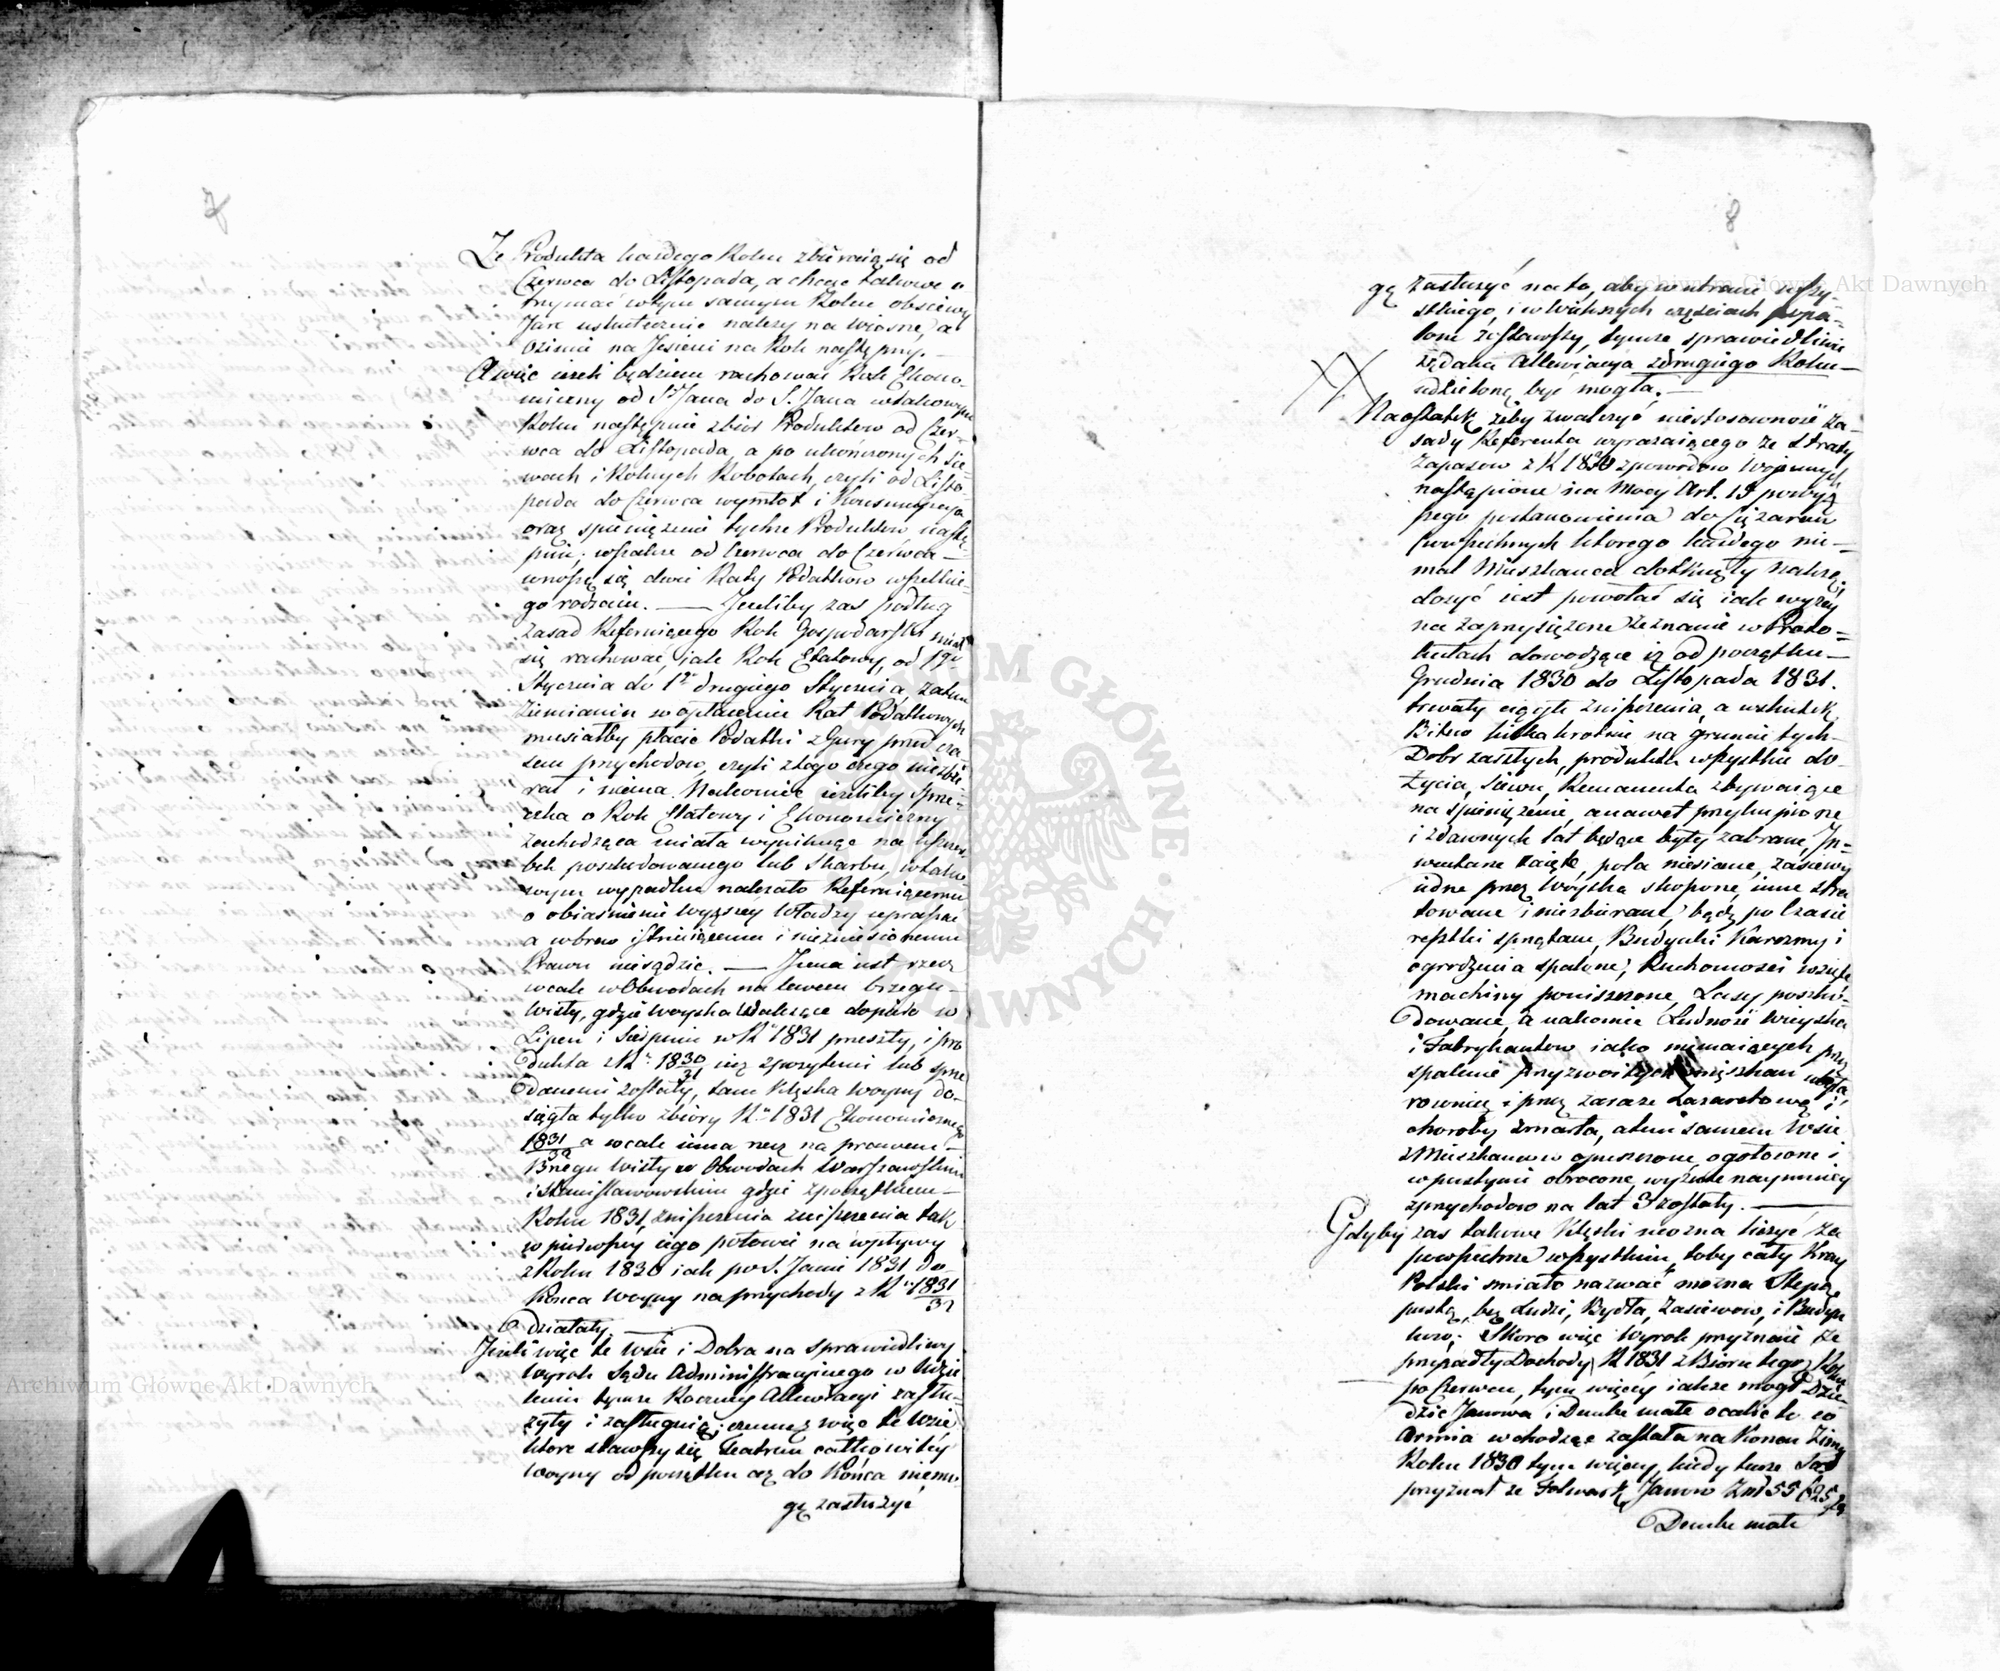 7
Ze Produkta każdego Roku zbieraią się od
Czerwca do Listopada, a chcąc takowe o
trzymać w tym samym Roku obsiewy
Jare uskutecznić należy na wiosnę, a
ozimie na Jesieni na Rok następny. —
A więc ieżeli będziem rachować Rok Ekono-
miczny od Sº Jana do S. Jana w takowym
Roku następuie zbior Produktow od Czer-
wca do Listopada, a po ukończonych sie-
wach i Rolnych Robotach, czyli od Listo-
pada do Czerwca wymłot i Konsumpcya
oraz spieniężenie tychże Produktow nastę-
puie; wszakże od Czerwca do Czerwca —
wnoszą się dwie Raty Podatkow wszelkie-
go rodzaiu. — Jeżeliby zas podług
zasad Referuiącego Rok Gospodarski miał
się rachować, iak Rok Etatowy, od 1go
Stycznia do 1º drugiego Stycznia, zatem
Ziemianin w opłacenie Rat Podatkowych
musiałby płacić Podatki z Gury przed cza-
sem przychodow, czyli z tego czego niezbie-
rał i niema. Nakoniec ieżeliby sprze-
czka o Rok Etatowy i Ekonomiczny
zachodząca miała wyniknąć na uszczer-
bek poszkodowanego lub Skarbu, w tako-
wym wypadku należało Referuiącemu
o obiaśnienie wyższey Władzy upraszać
a wbrew istnieiącemu i niezniesionemu
Prawu niesądzić. — Inna iest rzecz
wcale w Obwodach na lewem brzegu —
Wisły, gdzie woyska walczące dopiero w
Lipcu i Sierpniu w Rº 1831 przeszły, i pro
dukta z Rº 1830/31 iuż spożytemi lub sprze
danemi zostały, tam klęska woyny do-
sięgła tylko zbiory Rº 1831 Ekonomicznego
1831/32 a wcale inna rzecz na prawem —
Brzegu Wisły w Obwodach Warszawskim
i Stanisławowskim gdzie z początkiem —
Roku 1831, zniszczenia zniszczenia tak
w pierwszey iego połowie na wpływy
z Roku 1830 iak po S. Janie 1831 do
Konca woyny na przychody z Rº 1831/32
działały. —
Jeżeli więc te wsie i Dobra na sprawiedliwy
wyrok Sądu Administracyinego w udzie
leniu tymże Roczney Allewiacyi zasłu-
żyły i zasługuią; czemuż więc te wsie
ktore stawszy się Teatrem całkowitey
woyny od początku aż do Końca niemo-
gą zasłużyć
8
gą zasłużyć na to, aby w utracie wszy-
stkiego, i w wielnych częściach popa-
lone zostawszy, tymże sprawiedliwie
żądana Allewiacya z drugiego Roku —
udzieloną być mogła. —
Naostatek żeby zwalczyć niestosowność za-
sady Referenta wyrażaiącego że straty
zapasow z R 1830 z powodow Woiennych
nastąpione na Mocy Art. 19 powyż
szego postanowienia do Ciężarow
powszechnych ktorego każdego nie-
mal Mieszkanca dotknęły należą,
dosyć iest powołać się iak wyżey
na zaprzysiężone zeznanie w Proto-
kułach dowodzące iż od początku —
Grudnia 1830 do Listopada 1831.
trwały ciągłe zniszczenia, a wskutek
Bitew kilkakrotnie na gruncie tych —
Dobr zaszłych, produkta wszystkie do-
życia, siewu, Remanenta zbywaiące
na spieniężenie, a nawet przykupione
i z dawnych lat będące były zabrane, In-
wentarze zaięte, pola niesiane, zasiewy
iedne przez woyska skopone, inne stra
towane i niezbierane, będź po Czasie
resztki sprzątane, Budynki Karczmy i
ogrodzenia spalone, Ruchomości wzięte
machiny poniszczone, Lasy poszko-
dowane, a nakoniec Ludność wieyska
i Fabrykantow iako niemaiących przez
spalenie przyzwoitych mięszkan uległa
rownież i przez zaraze Lazaretową i
choroby zmarła, a tem samem Wsie
z Mieszkancow opuszczone ogołocone i
w pustynie obrocone, wyzute naymniey
z przychodow na lat 3 zostały. —
Gdyby zas takowe Klęski można liczyć za
powszechne wszystkim, toby cały Kray
Polski smiało nazwać można Stepą
pustą, bez Ludzi, Bydła, Zasiewow, i Budyn
kow; Skoro więc Wyrok przyznaie że
przypadły Dochody R 1831 z Zbioru tegoż Roku
po Czerwcu, tym więcey iakże mogł Dzie
dzic Janowa i Dembe małe ocalić to co
Armia wchodząc zastała na Koncu Zimy
Roku 1830 tym więcey, kiedy tenże Sąd
przyznał że Folwark Janow Zł 55 625
Dembe małe